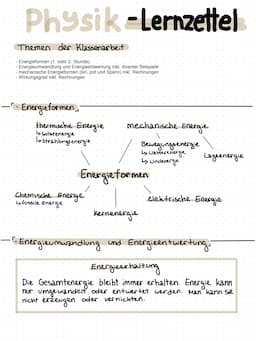 Physik - Lernzettel
Themen der Klassenarbeit
- Energieformen (1. oder 2. Stunde)
- Energieumwandlung und Energieentwertung inkl. diverser Beispiele
- mechanische Energieformen (kin, pot und Spann) inkl. Rechnungen
- Wirkungsgrad inkl. Rechnungen
Energieformen
thermische Energie
↳ Solarenergie
↳ Strahlungsenergie
mechanische Energie
Bewegungsenergie
Lageenergie
↳ Windenergie
Energieformen
Chemische Energie
↳ fossile Energie
Kernenergie
elektrische Energie
Energieumwandlung und Energieentwertung
Energieerhaltung
Die Gesamtenergie bleibt immer erhalten. Energie kann
nur umgewandelt oder entwertet werden. Man kann sie
nicht erzeugen oder vernichten.